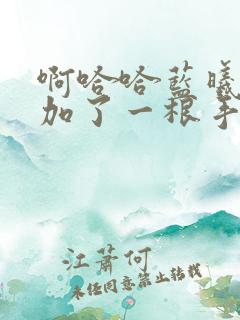 啊哈哈蓝曦
加了一根手
江萧何
未经同意禁止转载